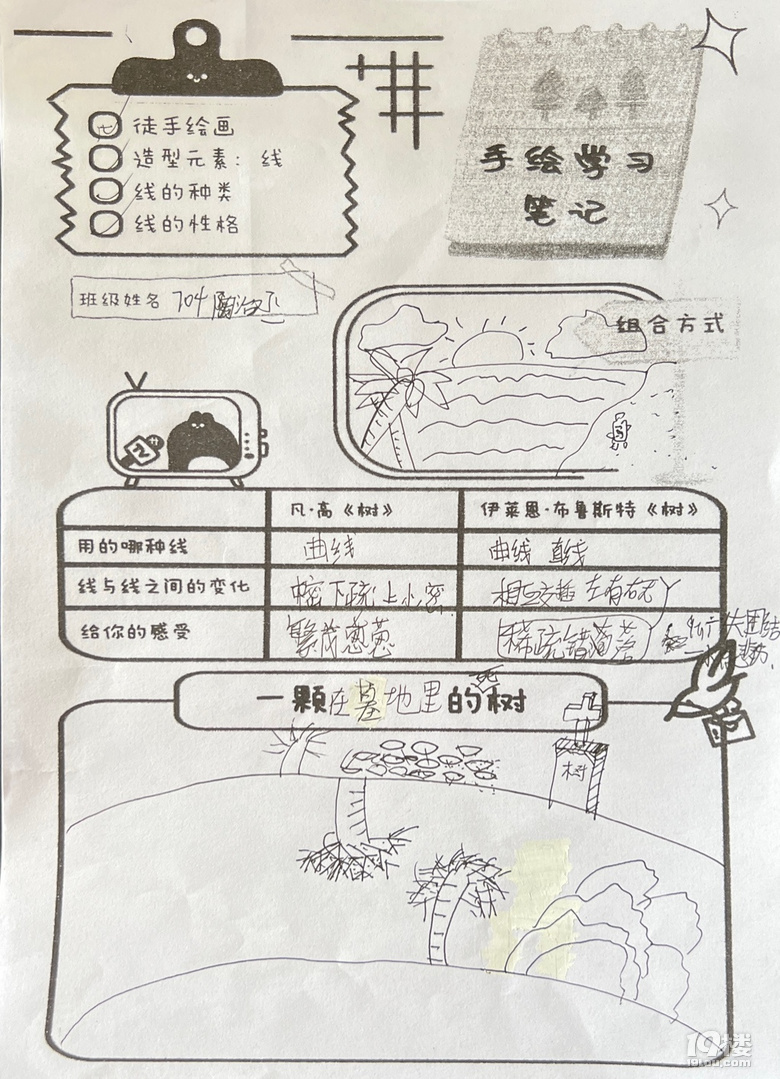 徒手绘画
造型元素：线
线的种类
线的性格
手绘学习
笔记
班级姓名 704
组合方式
凡·高《树》 伊莱恩·布鲁斯特《树》
用的哪种线 曲线 曲线 直线
线与线之间的变化 中密下疏上小密 相互交错 左有右无
给你的感受 繁茂葱葱 稀疏错落
失团结
死
一颗在墓地里的树
树
19楼
19lou.com